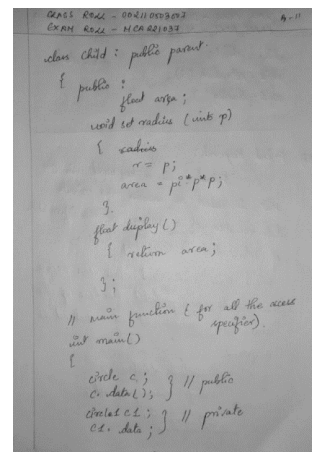 CLASS ROLL - 002110503007
EXAM ROLL - MCA221037
class Child : public parent.
{ public :
float area ;
void set radius ( int p)
{ radius
r = p ;
area = pi * p * p ;
}.
float display ()
{ return area ;
} ;
// main function ( for all the access
specifier).
int main()
{
circle c ;
c. data() ; } // public
circle1 c1 ;
c1. data ; } // private